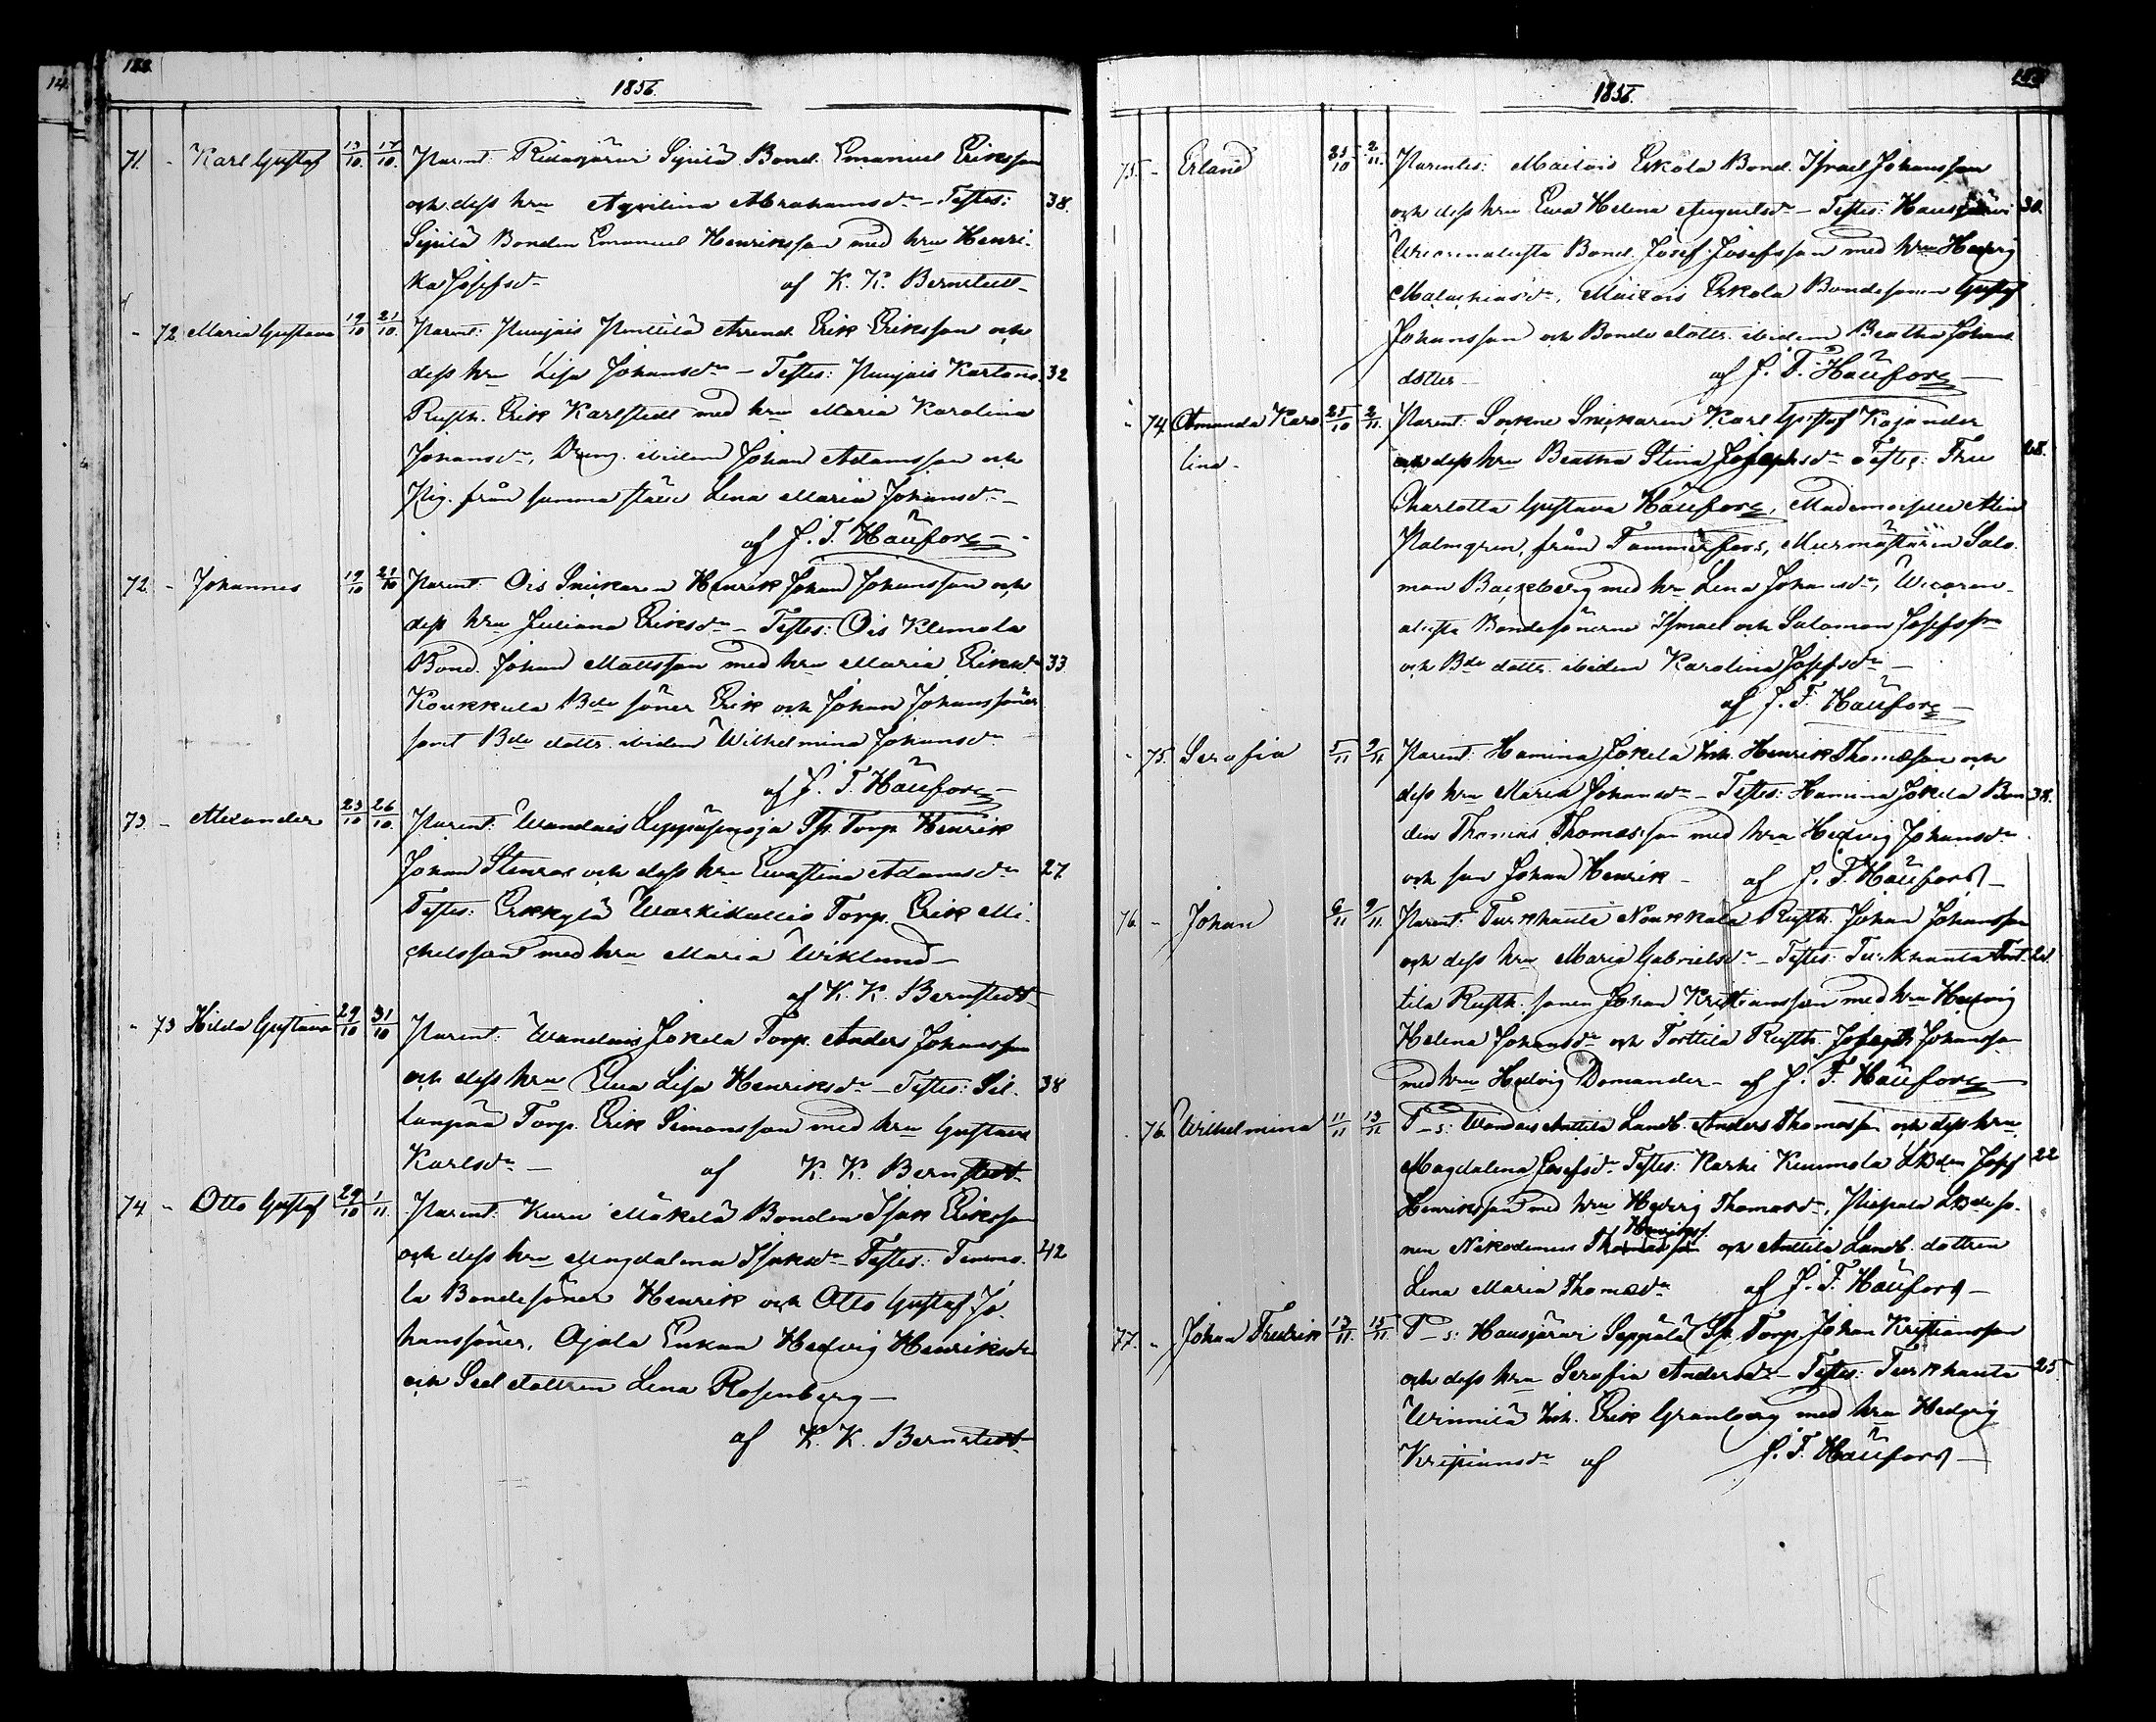 188.
1856.
71. - Karl Gustaf 13/10. 17/10. Parent: Ridasjärvi Sipilä Bond. Emanuel Eriksson
och dess hru Aqvilina Abrahamsdr - Testes: 38.
Sipilä Bonden Emanuel Henriksson med hru Henri-
ka Josefsdr af K. K. Bernstedt -
- 72. Maria Gustava 19/10 21/10. Parent: Puujais Penttilä Arrend. Erik Eriksson och
dess hru Lisa Johansdr - Testes: Puujais Kartano 32
Rusth. Erik Karlstedt med hru Maria Karolina
Johansdr, Dräng. ibidem Johan Adamsson och
Pig. från samma ställe Lena Maria Johansdr -
af J. F. Häüfors -
72. - Johannes 19/10 21/10 Parent: Ois Snickaren Henrik Johan Johansson och
dess hru Juliana Eriksdr - Testes: Ois Klemola
Bond. Johan Mattsson med hru Maria Eriksdr 33
Koukkula Bde söner Erik och Johan Johanssöner
samt Bde dottr. ibidem Wilhelmina Johansdr
af J. F. Häüfors -
73. - Alexander 23/10 26/10. Parent: Wandais Leppäsensja Sp. Torp. Henrik
Johan Stenroos och dess hru Ewastina Adamsdr 27.
Testes: Erkkylä Warkikallio Torp. Erik Mi-
chelsson med hru Maria Wiklund -
af K. K. Bernstedt
- 73 Hilda Gustava 29/10 31/10 Parent: Wandais Jokela Torp. Anders Johansson
och dess hru Ewa Lisa Henriksdr - Testes: Sil- 38
lanpää Torp. Erik Simonsson med hru Gustava
Karlsdr - af K. K. Bernstedt
74 - Otto Gustaf 29/10 1/11. Parent: Kuru Mäkelä Bonden Isak Eriksson
och dess hru Magdalena Isaksdr - Testes: Timmo- 42
la Bondesöner Henrik och Otto Gustaf Jo-
hanssöner, Ojala Enkan Hedvig Henriksdr
och Sold dottren Lena Rosenberg -
af K. K. Bernstedt
1856.
75. - Erland 25/10 2/11. Parentes: Maitois Erkola Bond. Israel Johansson
och dess hru Ewa Helena Augustsdr - Testes: Hausjärvi 30.
Bond. Josef Josefsson med hru Hedvig
Malachiasdr, Maitois Erkola Bondesonen Gustaf
Johansson och Bonde dottr. ibidem Beatha Johans
dotter - af J. F. Häüfors -
- 74. Amanda Karo- 25/10 2/11. Parent: Sockne Snickaren Karl Gustaf Kajander
lina - och dess hru Beatha Stina Josephsdr Testes: Fru 28.
Charlotta Gustava Häüfors, Mademoiselle Alin
Palmgren, från Tammerfors, Murmästaren Salo-
mon Backberg med hru Lena Johansdr,
Bondesönerne Ismael och Salomon Josefssr
och Bde dottr. ibidem Karolina Josefsdr -
af J. F. Häüfors -
- 75. Serafia 5/11 9/11 Parent: Hamina Jokela Inh. Henrik Thomasson och
dess hru Maria Johansdr - Testes: Hamina Jokela Bon- 38.
den Thomas Thomasson med hru Hedvig Johansdr
och son Johan Henrik - af J. F. Häüfors -
76. - Johan 6/11 9/11. Parent: Turkhauta Noukkala Rusth. Johan Johansson
och dess hru Maria Gabrielsdr - Testes: Turkhauta Tort- 20.
tila Rusth. sonen Johan Kristiansson med hru Hedvig
Helena Johansdr och Torttila Rusth. Joseph Johansson
med hru Hedvig Domander - af J. F. Häüfors -
- 76. Wilhelmina 11/11 13/11 P-s: Wandais Anttila Landb. Anders Thomasson och dess hru
Magdalena Josefsdr Testes: Karhi Kuumola LBden Josef 22
Henriksson med hru Hedvig Thomasdr, Piispala LBdeso-
nen Nikodemus Thomasson Henrikss. och Anttila Landb. dottren
Lena Maria Thomasdr af J. F. Häüfors -
77. - Johan Fredrik 13/11. 15/11. P-s: Hausjärvi Seppälä Sp. Torp. Johan Kristiansson
och dess hru Serafia Andersdr - Testes: Turkhauta 25
Winnilä Inh. Erik Granberg med hru Hedvig
Kristiansdr af J. F. Häüfors -